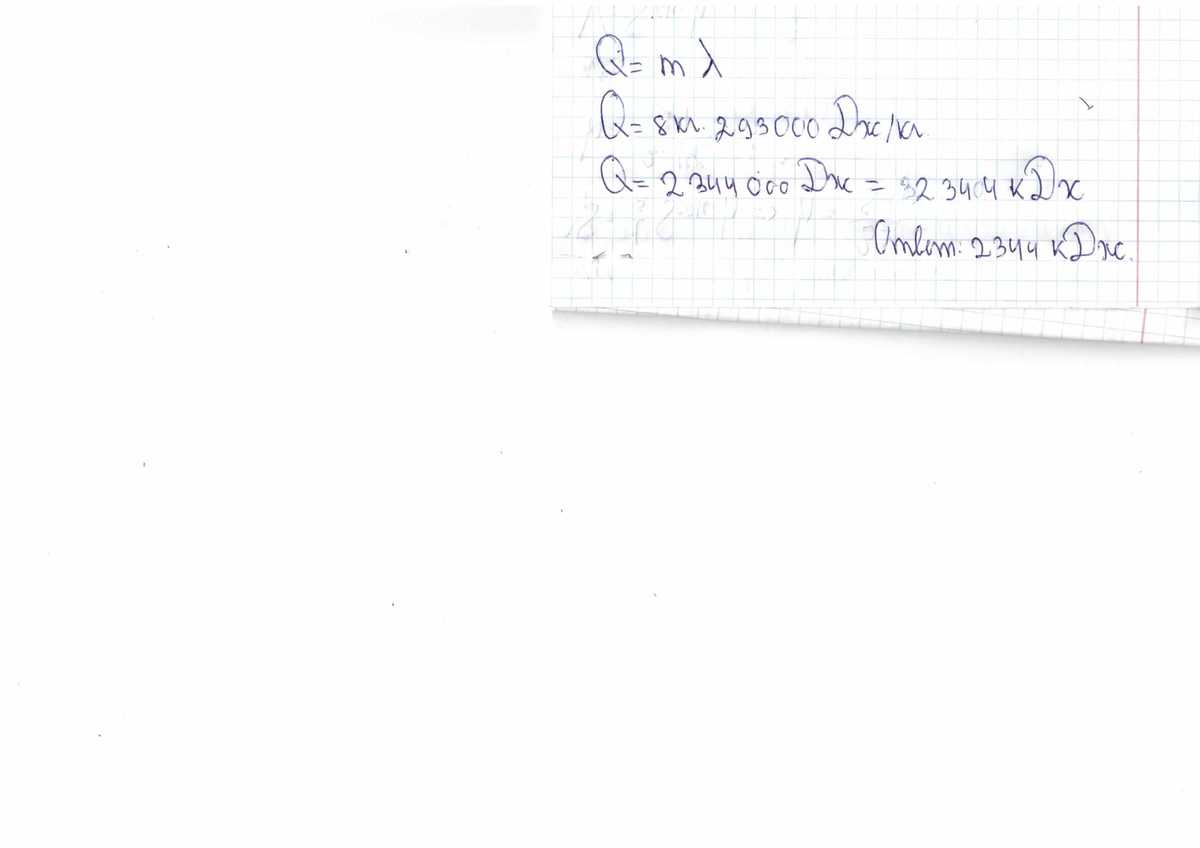 Q = m λ
Q = 8 кг · 293000 Дж/кг
Q = 2344000 Дж = 2344 кДж
Ответ: 2344 кДж.